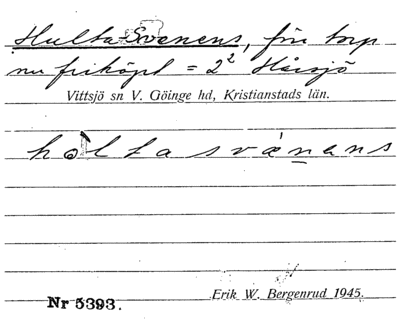 Hulta-Svenens, förr torp
nu friköpt = 2² Hårsjö
Vittsjö sn V. Göinge hd, Kristianstads län.
holtasvænans
Erik W. Bergenrud 1945.
Nr 5393.